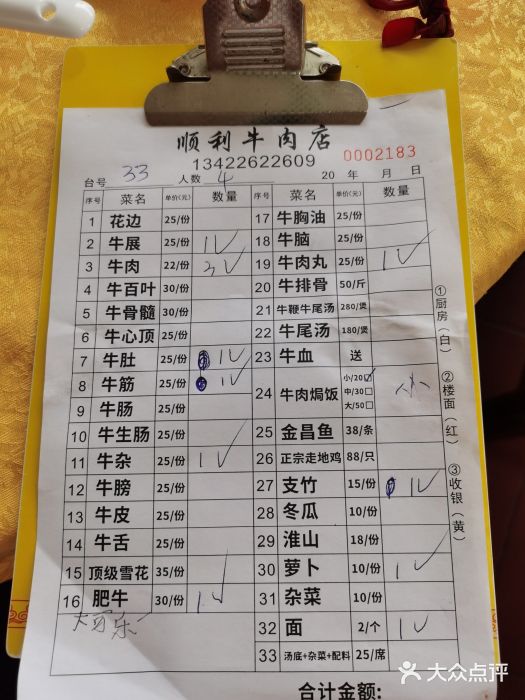 顺利牛肉店
13422622609 0002183
台号 33 人数 4 20 年 月 日
序号 菜名 单价(元) 数量 序号 菜名 单价(元) 数量
1 花边 25/份 17 牛胸油 25/份
2 牛展 25/份 1√ 18 牛脑 25/份
3 牛肉 22/份 3√ 19 牛肉丸 25/份 1√
4 牛百叶 30/份 20 牛排骨 50/斤
5 牛骨髓 30/份 21 牛鞭牛尾汤 280/煲
6 牛心顶 25/份 22 牛尾汤 180/煲
7 牛肚 25/份 1√ 23 牛血 送
8 牛筋 25/份 1√ 24 牛肉焗饭 小/20☑ 中/30□ 大/50□ 小
9 牛肠 25/份
10 牛生肠 25/份 25 金昌鱼 38/条
11 牛杂 25/份 1√ 26 正宗走地鸡 88/只
12 牛膀 25/份 27 支竹 15/份 1√
13 牛皮 25/份 28 冬瓜 10/份
14 牛舌 25/份 29 淮山 18/份
15 顶级雪花 35/份 30 萝卜 10/份 1√
16 肥牛 30/份 1√ 31 杂菜 10/份
32 面 2/个 1√
33 汤底+杂菜+配料 25/席
合计金额:
①厨房(白)
②楼面(红)
③收银(黄)
大众点评